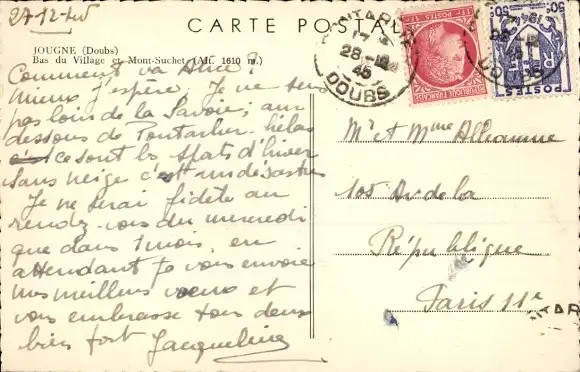 27-12-45
CARTE POSTALE
JOUGNE (Doubs)
Bas du Village et Mont-Suchet (Alt. 1610 m.)
Comment va Alice ?
Mieux j'espère. Je ne suis
pas loin de la Savoie ; au
dessous de Pontarlier. hélas
ce sont les sports d'hiver
sans neige c'est un désastre
Je ne serai fidèle au
rendez-vous du mercredi
que dans 1 mois, en
attendant je vous envoie
mes meilleurs voeux et
vous embrasse tous deux
bien fort Jacqueline
Mr et Mme
105 Av de la
République
Paris 11e
PONTARLIER
17
28-12
45
DOUBS
POSTES
RÉPUBLIQUE FRANÇAISE
50c
50c
POSTES